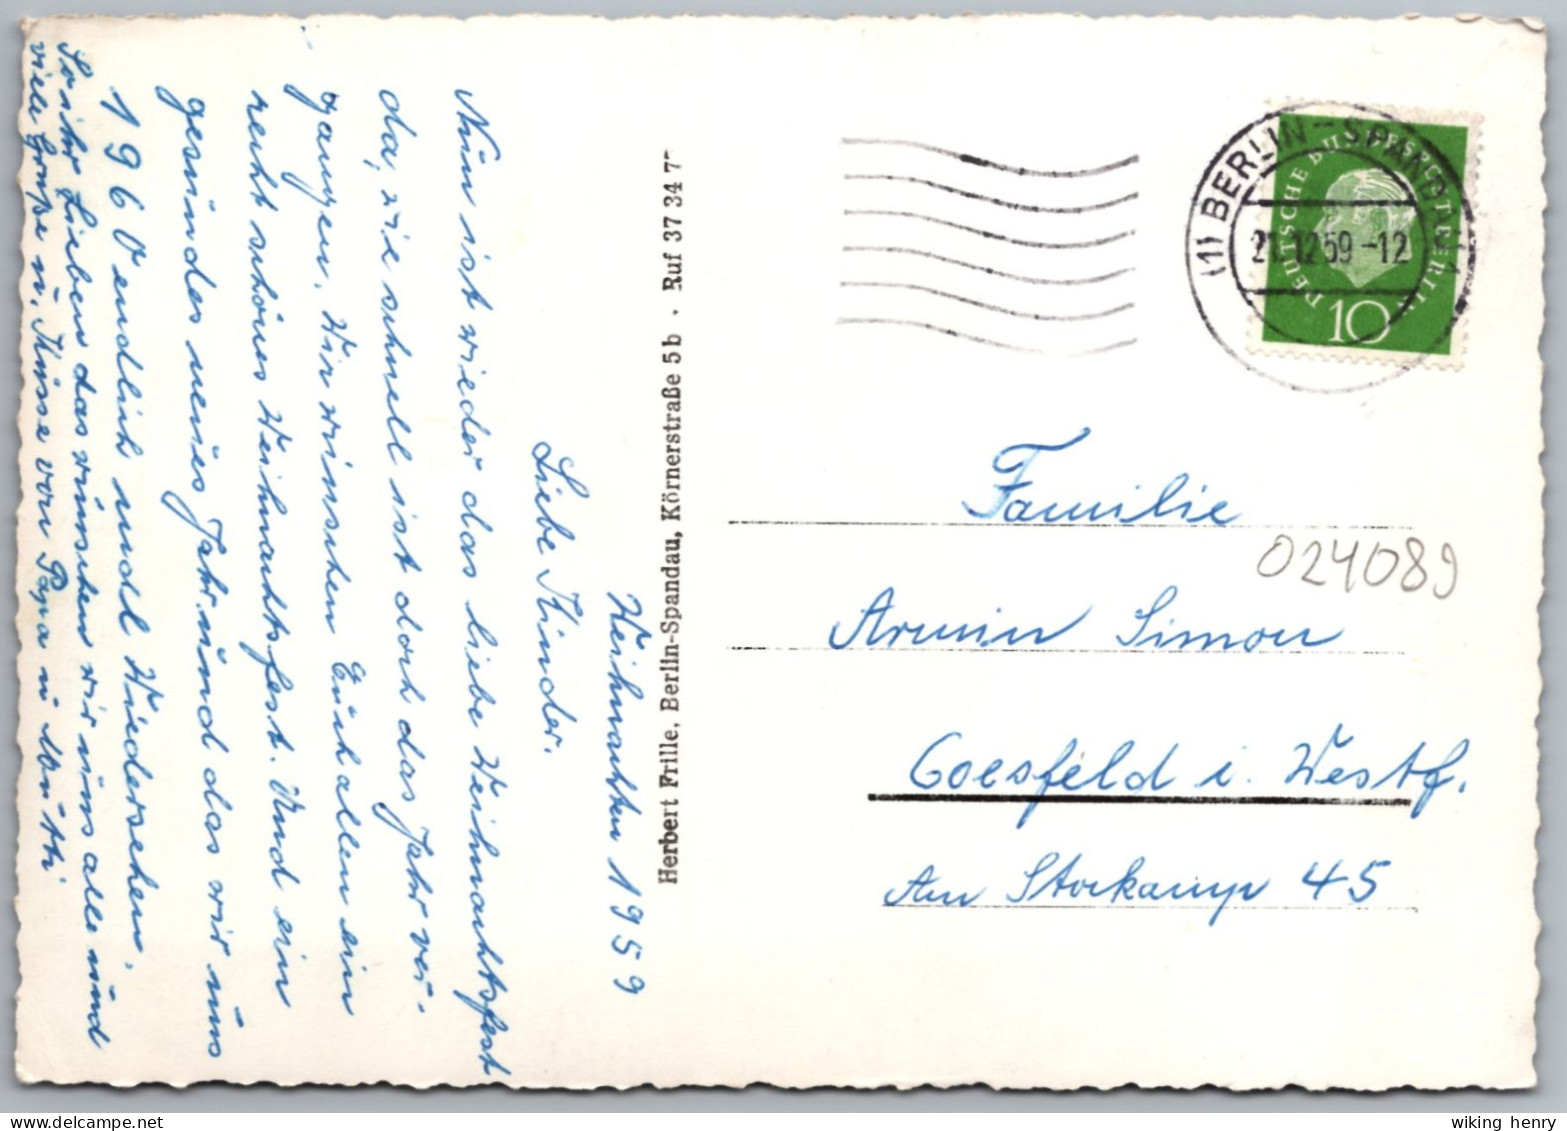 Weihnachten 1959
Liebe Kinder.
Nun ist wieder das liebe Weihnachtsfest
da, wie schnell ist doch das Jahr ver-
gangen. Wir wünschen Euch allen ein
recht schönes Weihnachtsfest. Und ein
gesundes neues Jahr und das wir uns
1960 endlich mal Wiedersehen.
So ihr Lieben das wünschen wir uns alle und
viele Grüße u. Küsse von Papa u Mutti
Herbert Frille, Berlin-Spandau, Körnerstraße 5b · Ruf 37 34 7
(1) BERLIN-SPANDAU 1
21.12.59.-12
DEUTSCHE BUNDESPOST BERLIN
10
Familie
024089
Armin Simon
Coesfeld i. Westf.
Am Stockamp 45
wiking henry